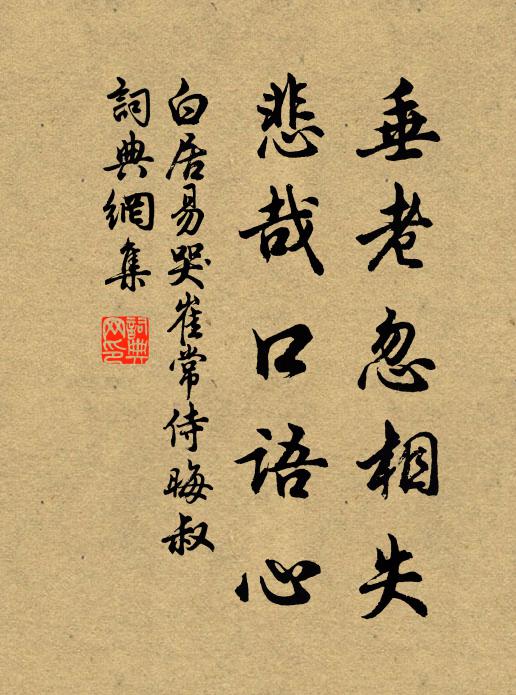 垂老忽相失
悲哉口語心
白居易哭崔常侍晦叔
詞典網集
詞典网印